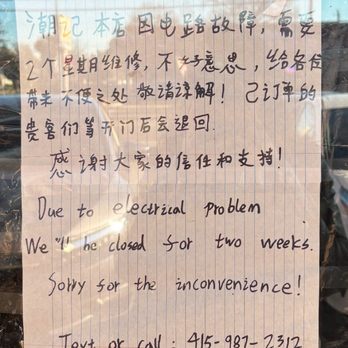 潮记 本店 因电路故障, 需要
2个星期维修, 不好意思, 给各位
带来 不便之处 敬请谅解! 己订单的
贵客们等开门后会退回.
感谢对大家的信任和支持!
Due to electrical problem
We'll be closed for two weeks.
Sorry for the inconvenience!
Text or call: 415-987-2312